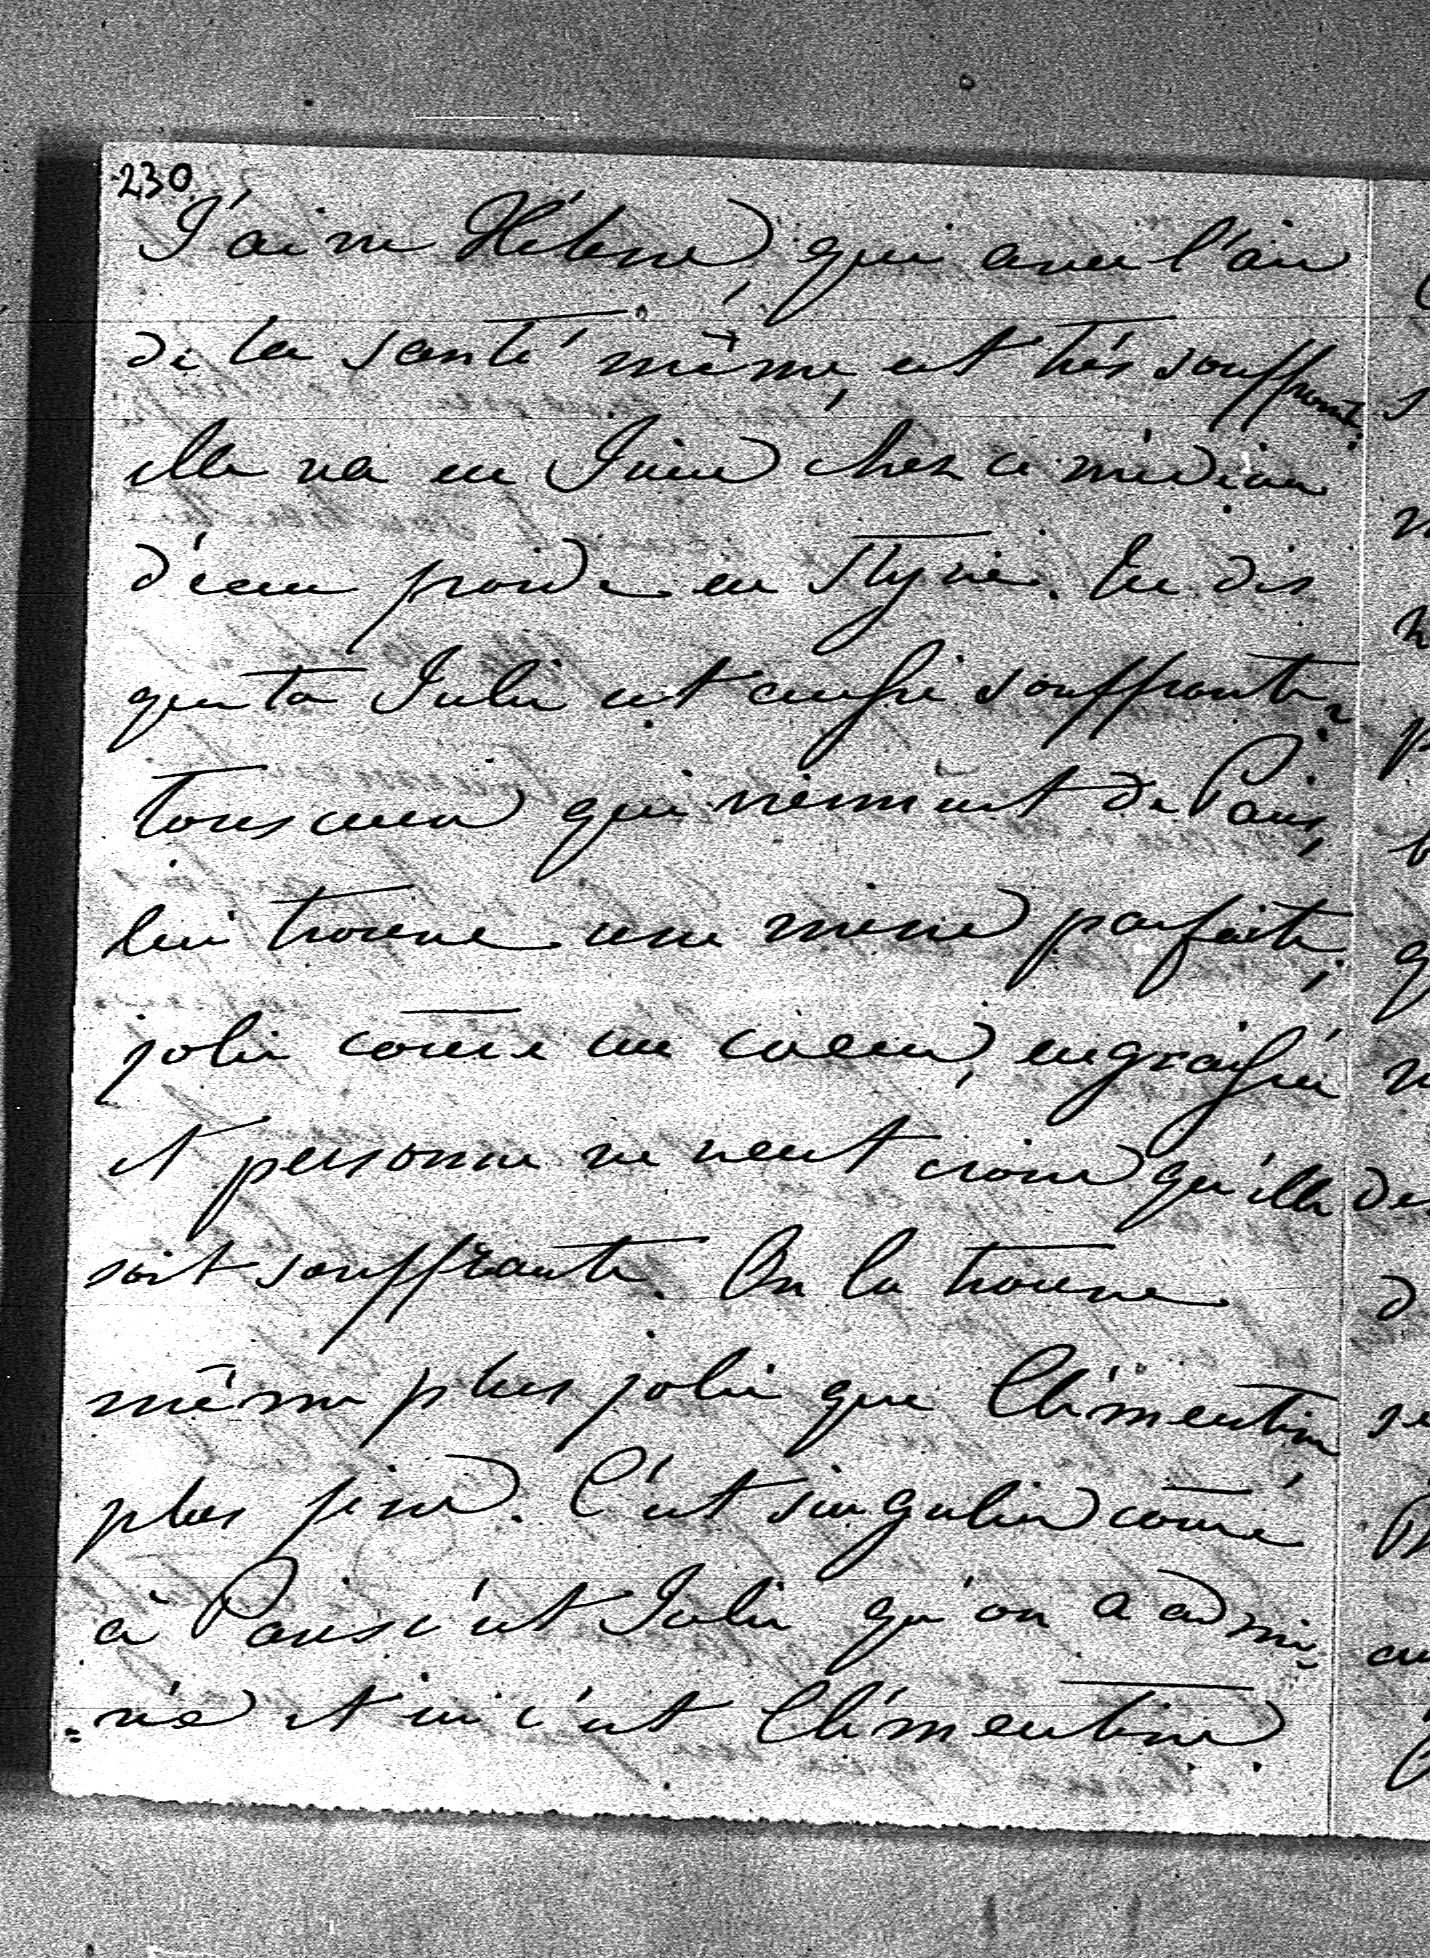 230
J'ai vu Hélène, qui avec l'air
de la santé même, est très souffrante.
elle va en Juin chez ce médecin
d'eau froide en Styrie. Tu dis
que ta Julie est aussi souffrante,
tous ceux qui viennent de Paris,
lui trouve une mine parfaite,
jolie come un coeur, engraissée
et personne ne veut croire qu'elle
soit souffrante. On la trouve
même plus jolie que Clémentine,
plus fine. C'est singulier come
à Paris c'est Julie qu'on a admi-
-rée et ici c'est Clémentine.